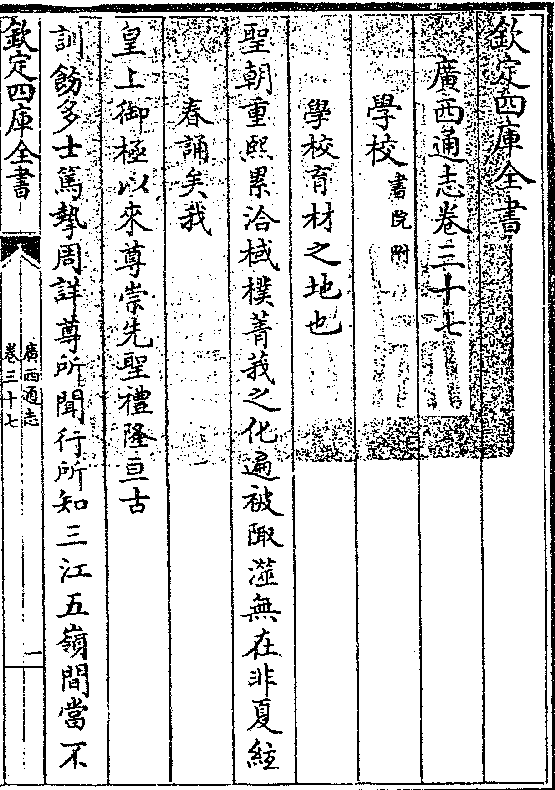 欽定四庫全書
廣西通志卷三十七
學校書院附
學校育材之地也
聖朝重熙累洽棫樸菁莪之化遍被陬澨無在非夏絃
春誦矣我
皇上御極以來尊崇先聖禮隆亘古
訓飭多士篤摯周詳尊所聞行所知三江五嶺間當不
欽定四庫全書
廣西通志
卷三十七
一